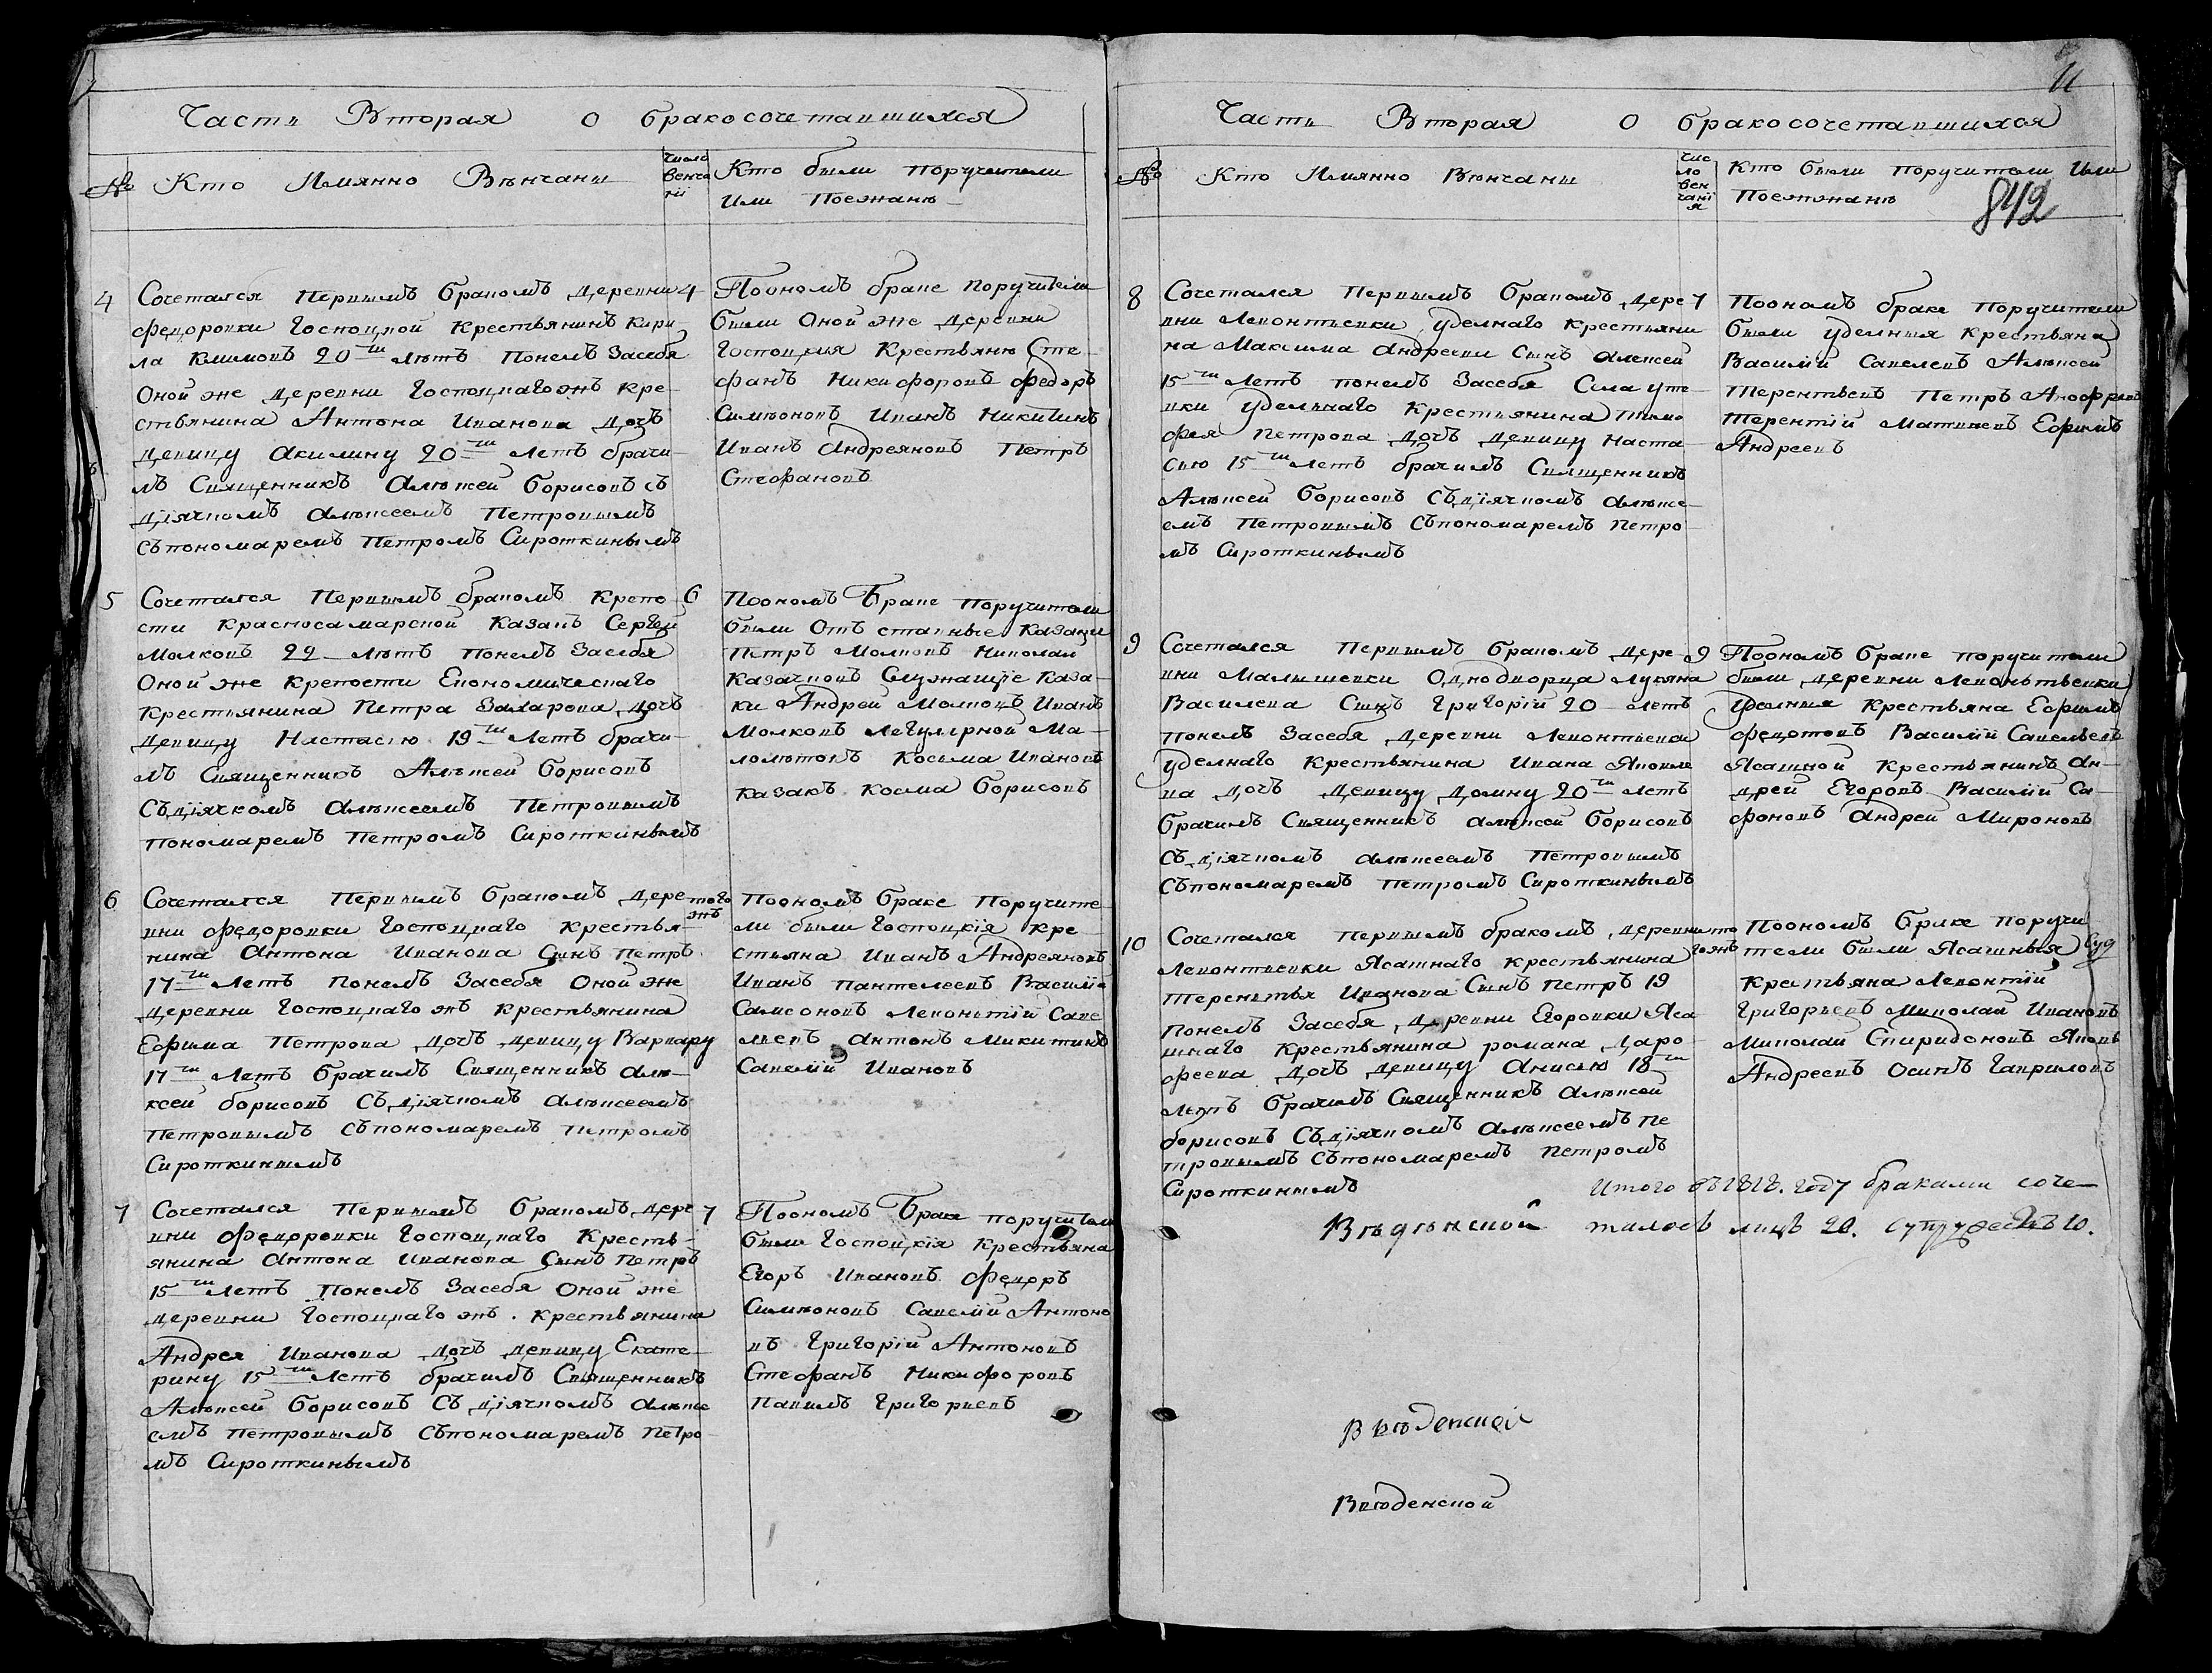 Часть Вторая о бракосочетавшихся
№ Кто Имянно Венчаны
число венча нiї
Кто были поручители
Или Поезжанѣ
4 Сочетался первымъ бракомъ деревни 4
Федоровки Господской крестьянинъ Кири
ла Климовъ 20ти летъ понелъ засебя
Оной же деревни Господнагожъ кре-
стьянина Антона Иванова дочь
девицу Акилину 20ти летъ брачи-
лъ Священникъ Алѣксей Борисовъ съ
дїячкомъ Алѣксеемъ Петровымъ
съпономаремъ Петромъ Сироткинымъ
Поономъ браке поручители
были Оной же деревни
Господския крестьянѣ Сте-
фанъ Никифоровъ Федоръ
Симѣоновъ Иванъ Никитинъ
Иванъ Андреяновъ Петръ
Стефановъ
5 Сочетался первымъ бракомъ крепо- 6
сти Красносамарской казакъ Сергей
Молковъ 22 летъ понелъ засебя
Оной же крепости Економическаго
крестьянина Петра Захарова дочь
девицу Настасью 19ти летъ брачи-
лъ Священникъ Алѣксей Борисовъ
Съдїячкомъ Алѣксеемъ Петровымъ
пономаремъ Петромъ Сироткинымъ
Поономъ Браке поручители
были Отъ ставные казаки
Петръ Молковъ Николай
Казачковъ Служащїе каза-
ки Андрей Молковъ Иванъ
Молковъ Легулярной Ма-
лолѣтокъ Косьма Ивановъ
казакъ Косма Борисовъ
6 Сочетался первымъ бракомъ дере- того жъ
вни Федоровки Господнаго крестья-
нина Антона Иванова Сынъ Петръ
17ти летъ понелъ засебя Оной же
деревни Господнаго жъ крестьянина
Ефима Петрова дочь девицу Варвару
17ти летъ брачилъ Священникъ Алѣ-
ксей Борисовъ Съдїячкомъ Алѣксеемъ
Петровымъ съпономаремъ Петромъ
Сироткинымъ
Поономъ браке поручите-
ли были Господскїя кре-
стьяна Иванъ Андреяновъ
Иванъ Пантелеевъ Василїй
Самсоновъ Левонътїй Саве
льевъ Антонъ Микитинъ
Савелїй Ивановъ
7 Сочетался первымъ бракомъ дере- 7
вни Федоровки Господнаго кресть-
янина Антона Иванова Сынъ Петръ
15ти летъ понелъ засебя Оной же
деревни Господнаго жъ крестьянина
Андрея Иванова дочь девицу Екате-
рину 15ти летъ брачилъ Священникъ
Алѣксей Борисовъ Съ дїячкомъ Алѣксе
емъ Петровымъ съпономаремъ Петро-
мъ Сироткинымъ
Поономъ Браке поручители
были Господскїя крестьяна
Егоръ Ивановъ Федоръ
Симѣоновъ Савелїй Антоно
въ Григорїй Антоновъ
Стефанъ Никифоровъ
Павилъ Григорьевъ
11
Часть Вторая о бракосочетавшихся
№ Кто Имянно Венчаны
чис ло вен чанї я
Кто были поручители Или
Поезжанѣ
842
8 Сочетался первымъ бракомъ дере 7
вни Левонтьевки уделнаго крестьяни
на Максима Андреева Сынъ Алексей
15ти летъ понелъ засебя Села Уте-
вки удельнаго крестьянина Тимо
фея Петрова дочь девицу Наста-
сью 15ти летъ брачилъ Священникъ
Алѣксей Борисовъ Съдїячкомъ Алѣксе-
емъ Петровымъ съпономаремъ Петро-
мъ Сироткинымъ
Поономъ браке поручители
были уделныя крестьяна
Василїй Савелевъ Алѣксей
Терентьевъ Петръ Анофрїевъ
Терентїй Матвеевъ Ефимъ
Андреевъ
9 Сочетался первымъ бракомъ дере- 9
вни Малышевки Однодворца Лукяна
Василева Сынъ Григорїй 20 летъ
понелъ засебя деревни Левонтьевки
уделнаго крестьянина Ивана Яковле
ва дочь девицу Домну 20ти летъ
брачилъ Священникъ Алѣксей Борисовъ
Съдїячкомъ Алѣксеемъ Петровымъ
съпономаремъ Петромъ Сироткинымъ
Поономъ браке поручители
были деревни Левонътьевки
Уделныя крестьяна Ефимъ
Федотовъ Василїй Савельевъ
Ясашной крестьянинъ Ан-
дрей Егоровъ Василїй Са-
фоновъ Андрей Мироновъ
10 Сочетался первымъ бракомъ деревни то гожъ
Левонтьевки Ясашнаго крестьянина
Терентья Иванова Сынъ Петръ 19
понелъ засебя деревни Егоровки Яса
шнаго крестьянина Романа Даро-
феева дочь девицу Анисью 18ти
летъ брачилъ Священникъ Алѣксей
Борисовъ Съдїячкомъ Алѣксеемъ Пе
тровымъ съпономаремъ Петромъ
Сироткинымъ
Поономъ браке поручи
тели были Ясашныя
крестьяна Левонтїй
Григорьевъ Миколай Ивановъ
Миколай Спиридоновъ Яковъ
Андреевъ Осипъ Гавриловъ
Итого въ году браками соче-
талось лицъ 20. супружествъ 10.